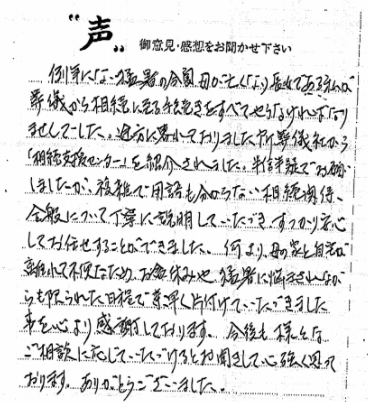 "声" 御意見・感想をお聞かせ下さい
例年にない猛暑の今夏母が亡くなり長女である私が
葬儀から相続に至る手続きをすべてやらなければなり
ませんでした。途方に暮れておりました所葬儀社から
「相続支援センター」を紹介されました。半信半疑でお願い
しましたが、複雑で用語も分からない相続関係、
全般について丁寧に説明していただき、すっかり安心
してお任せすることができました。何より、母の家と自宅が
離れて不便なため、お盆休みや猛暑に悩まされなが
らも限られた日程で素早く片付けていただきました
事を心より感謝しております。今後も様々な
ご相談に応じていただけるとお聞きして心強く思って
おります。ありがとうございました。